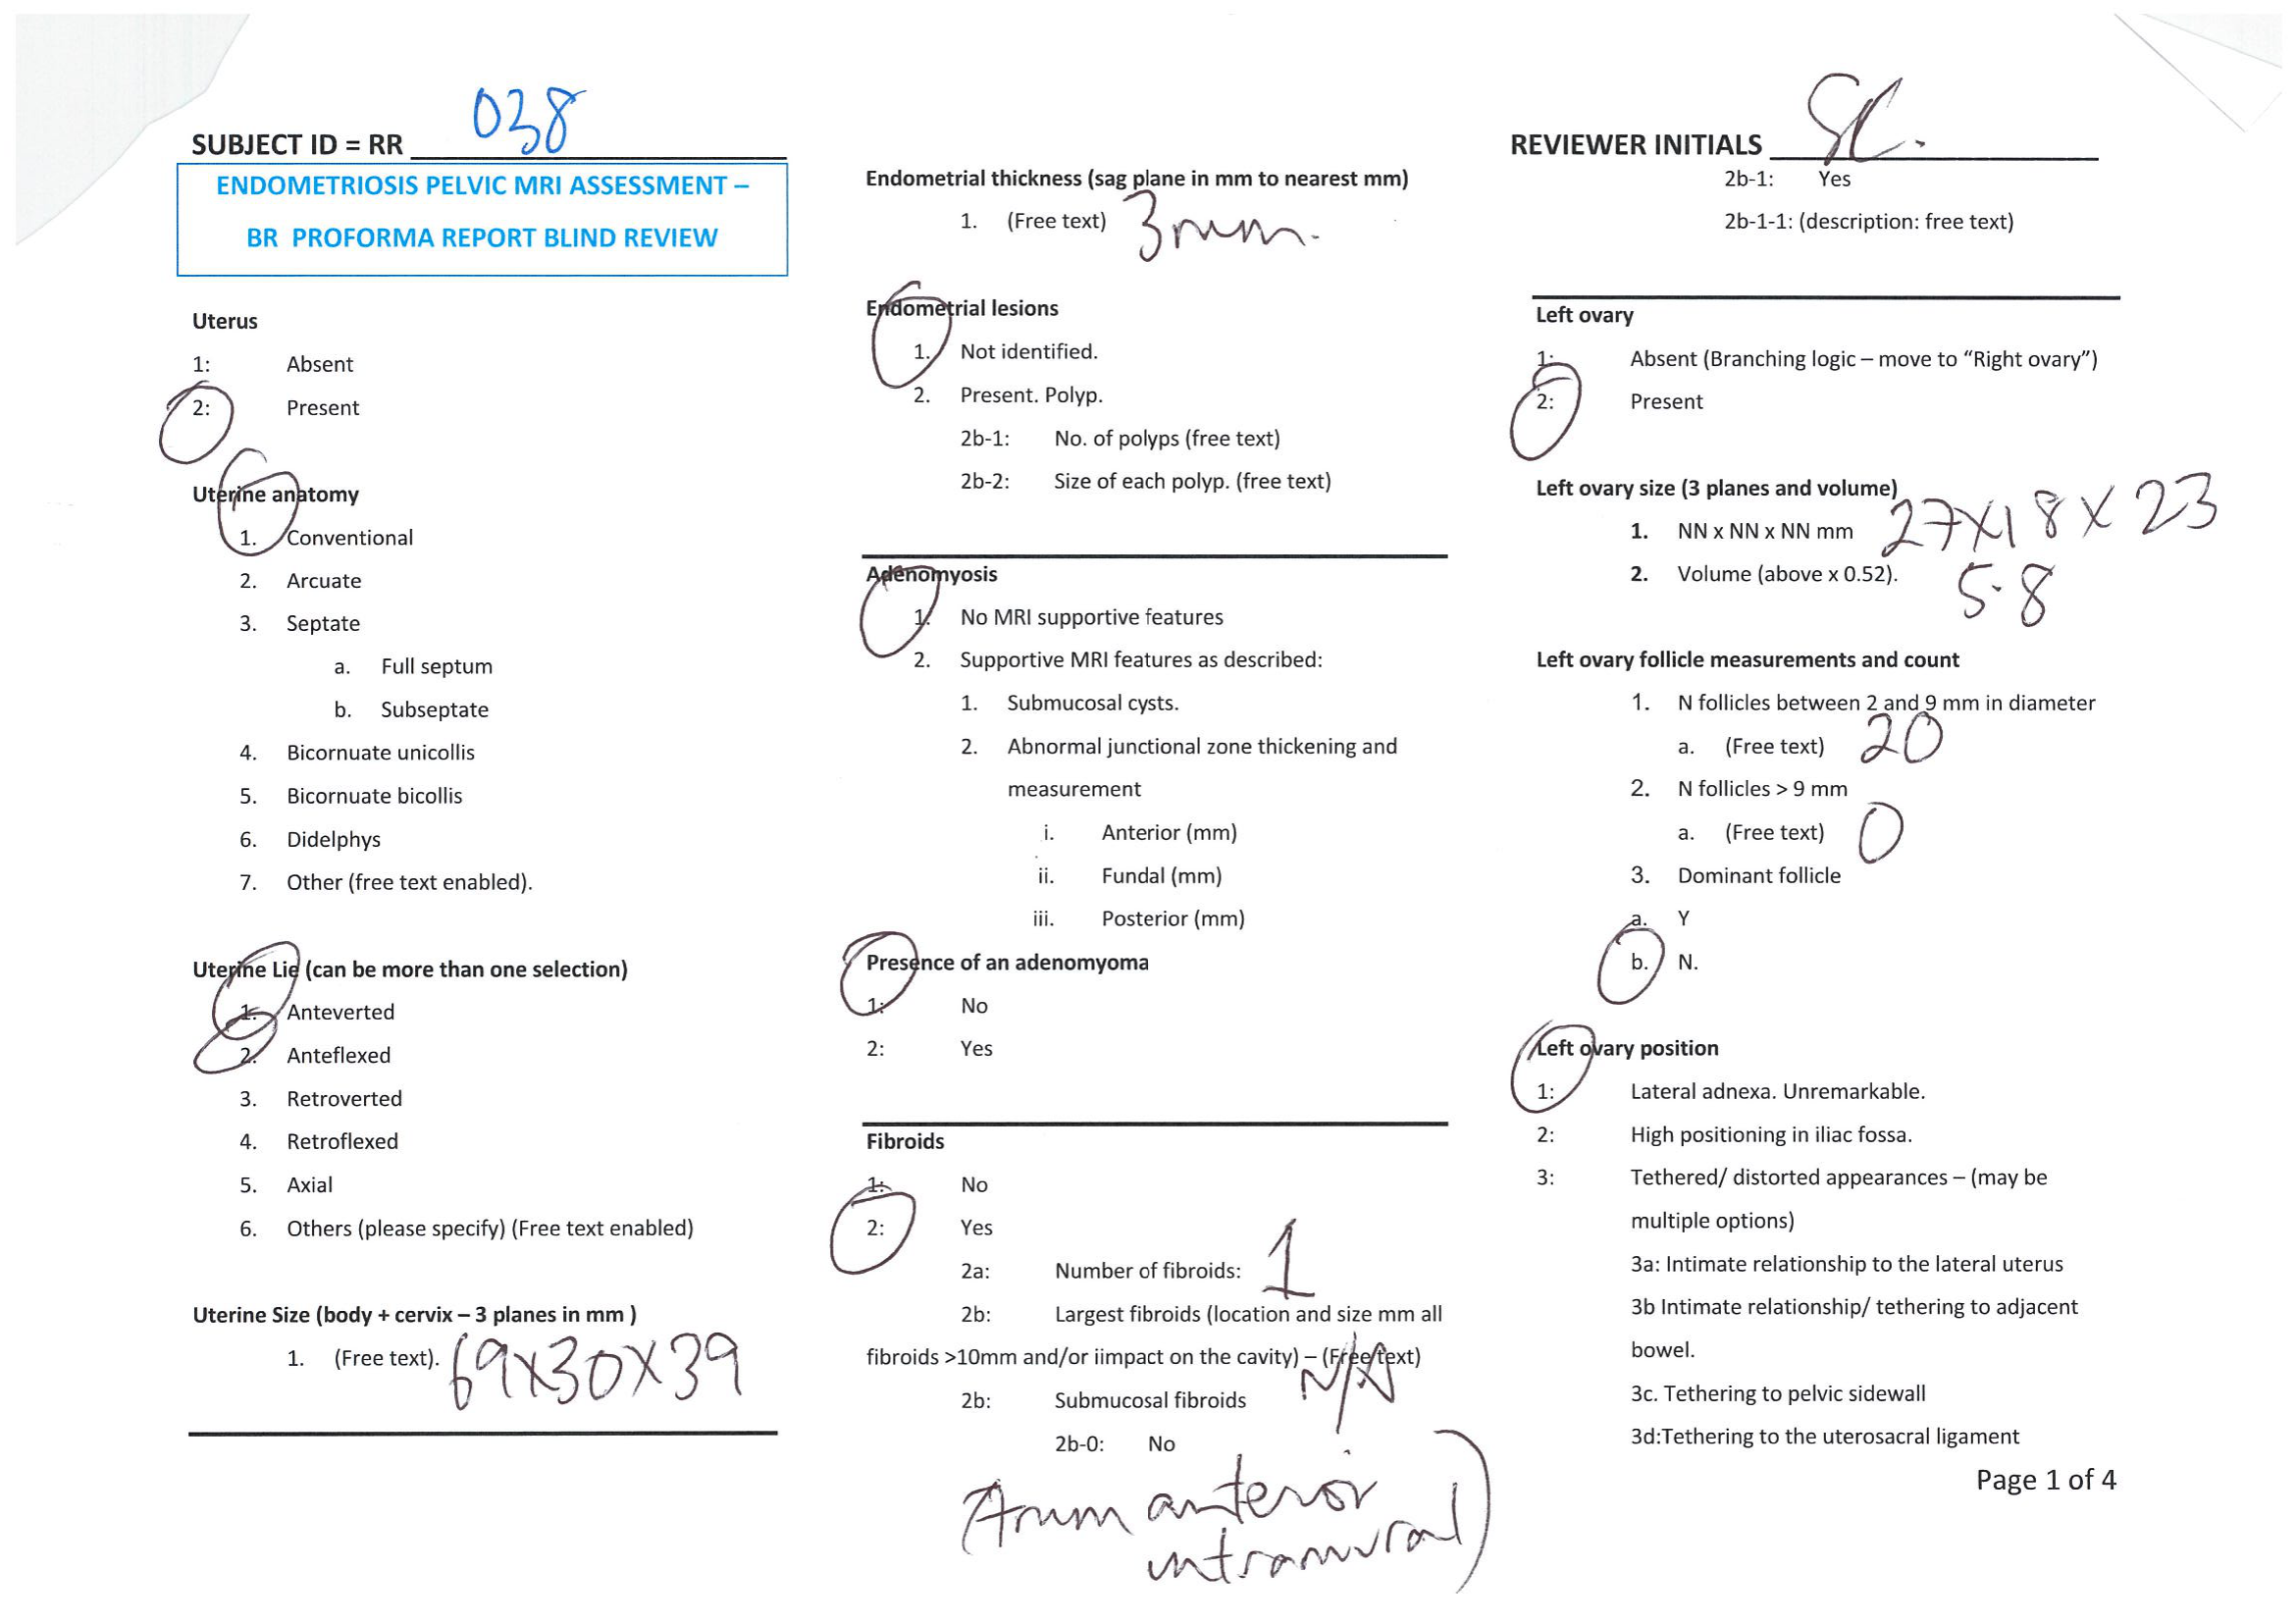 SUBJECT ID = RR 038
ENDOMETRIOSIS PELVIC MRI ASSESSMENT –
BR PROFORMA REPORT BLIND REVIEW
Uterus
1: Absent
2: Present
Uterine anatomy
1. Conventional
2. Arcuate
3. Septate
a. Full septum
b. Subseptate
4. Bicornuate unicollis
5. Bicornuate bicollis
6. Didelphys
7. Other (free text enabled).
Uterine Lie (can be more than one selection)
1. Anteverted
2. Anteflexed
3. Retroverted
4. Retroflexed
5. Axial
6. Others (please specify) (Free text enabled)
Uterine Size (body + cervix – 3 planes in mm )
1. (Free text). 69x30x39
Endometrial thickness (sag plane in mm to nearest mm)
1. (Free text) 3mm.
Endometrial lesions
1. Not identified.
2. Present. Polyp.
2b-1: No. of polyps (free text)
2b-2: Size of each polyp. (free text)
Adenomyosis
1. No MRI supportive features
2. Supportive MRI features as described:
1. Submucosal cysts.
2. Abnormal junctional zone thickening and
measurement
i. Anterior (mm)
ii. Fundal (mm)
iii. Posterior (mm)
Presence of an adenomyoma
1: No
2: Yes
Fibroids
1: No
2: Yes
2a: Number of fibroids: 1
2b: Largest fibroids (location and size mm all
fibroids >10mm and/or iimpact on the cavity) – (Free text)
N/A
2b: Submucosal fibroids
2b-0: No
anterior
intramural)
REVIEWER INITIALS SC.
2b-1: Yes
2b-1-1: (description: free text)
Left ovary
1: Absent (Branching logic – move to “Right ovary”)
2: Present
Left ovary size (3 planes and volume)
1. NN x NN x NN mm 27x18x23
2. Volume (above x 0.52). 5.8
Left ovary follicle measurements and count
1. N follicles between 2 and 9 mm in diameter
a. (Free text) 20
2. N follicles > 9 mm
a. (Free text) 0
3. Dominant follicle
a. Y
b. N.
Left ovary position
1: Lateral adnexa. Unremarkable.
2: High positioning in iliac fossa.
3: Tethered/ distorted appearances – (may be
multiple options)
3a: Intimate relationship to the lateral uterus
3b Intimate relationship/ tethering to adjacent
bowel.
3c. Tethering to pelvic sidewall
3d:Tethering to the uterosacral ligament
Page 1 of 4